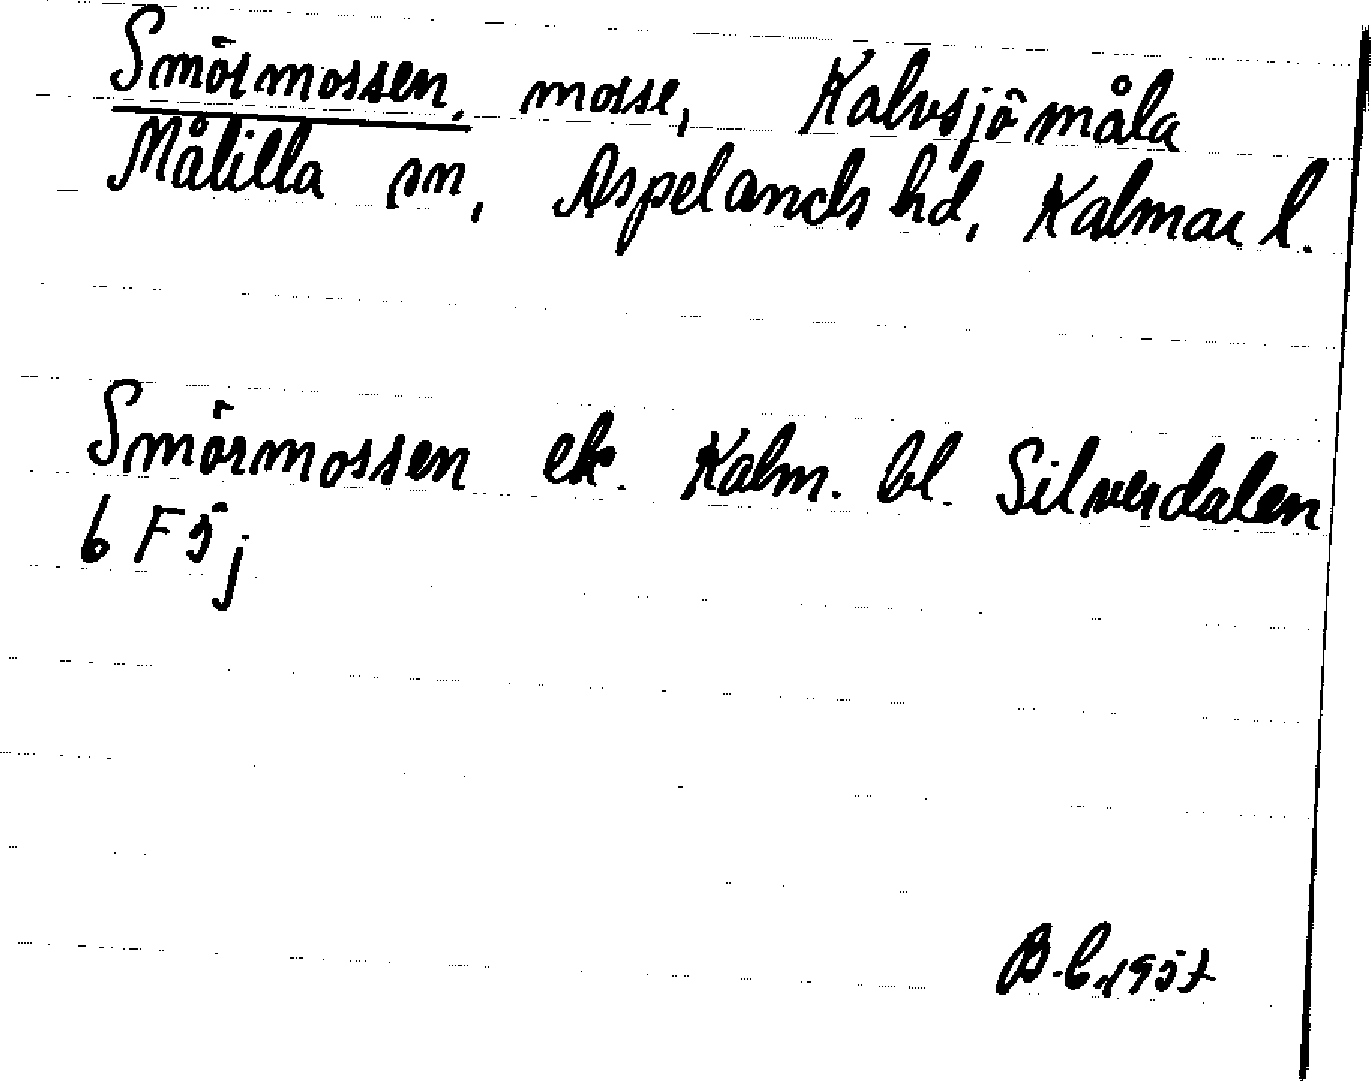 Smörmossen, mosse, Kalvsjömåla
Målilla sn, Aspelands hd, Kalmar l.
Smörmossen ek. Kalm. bl. Silverdalen
6 F 5 j